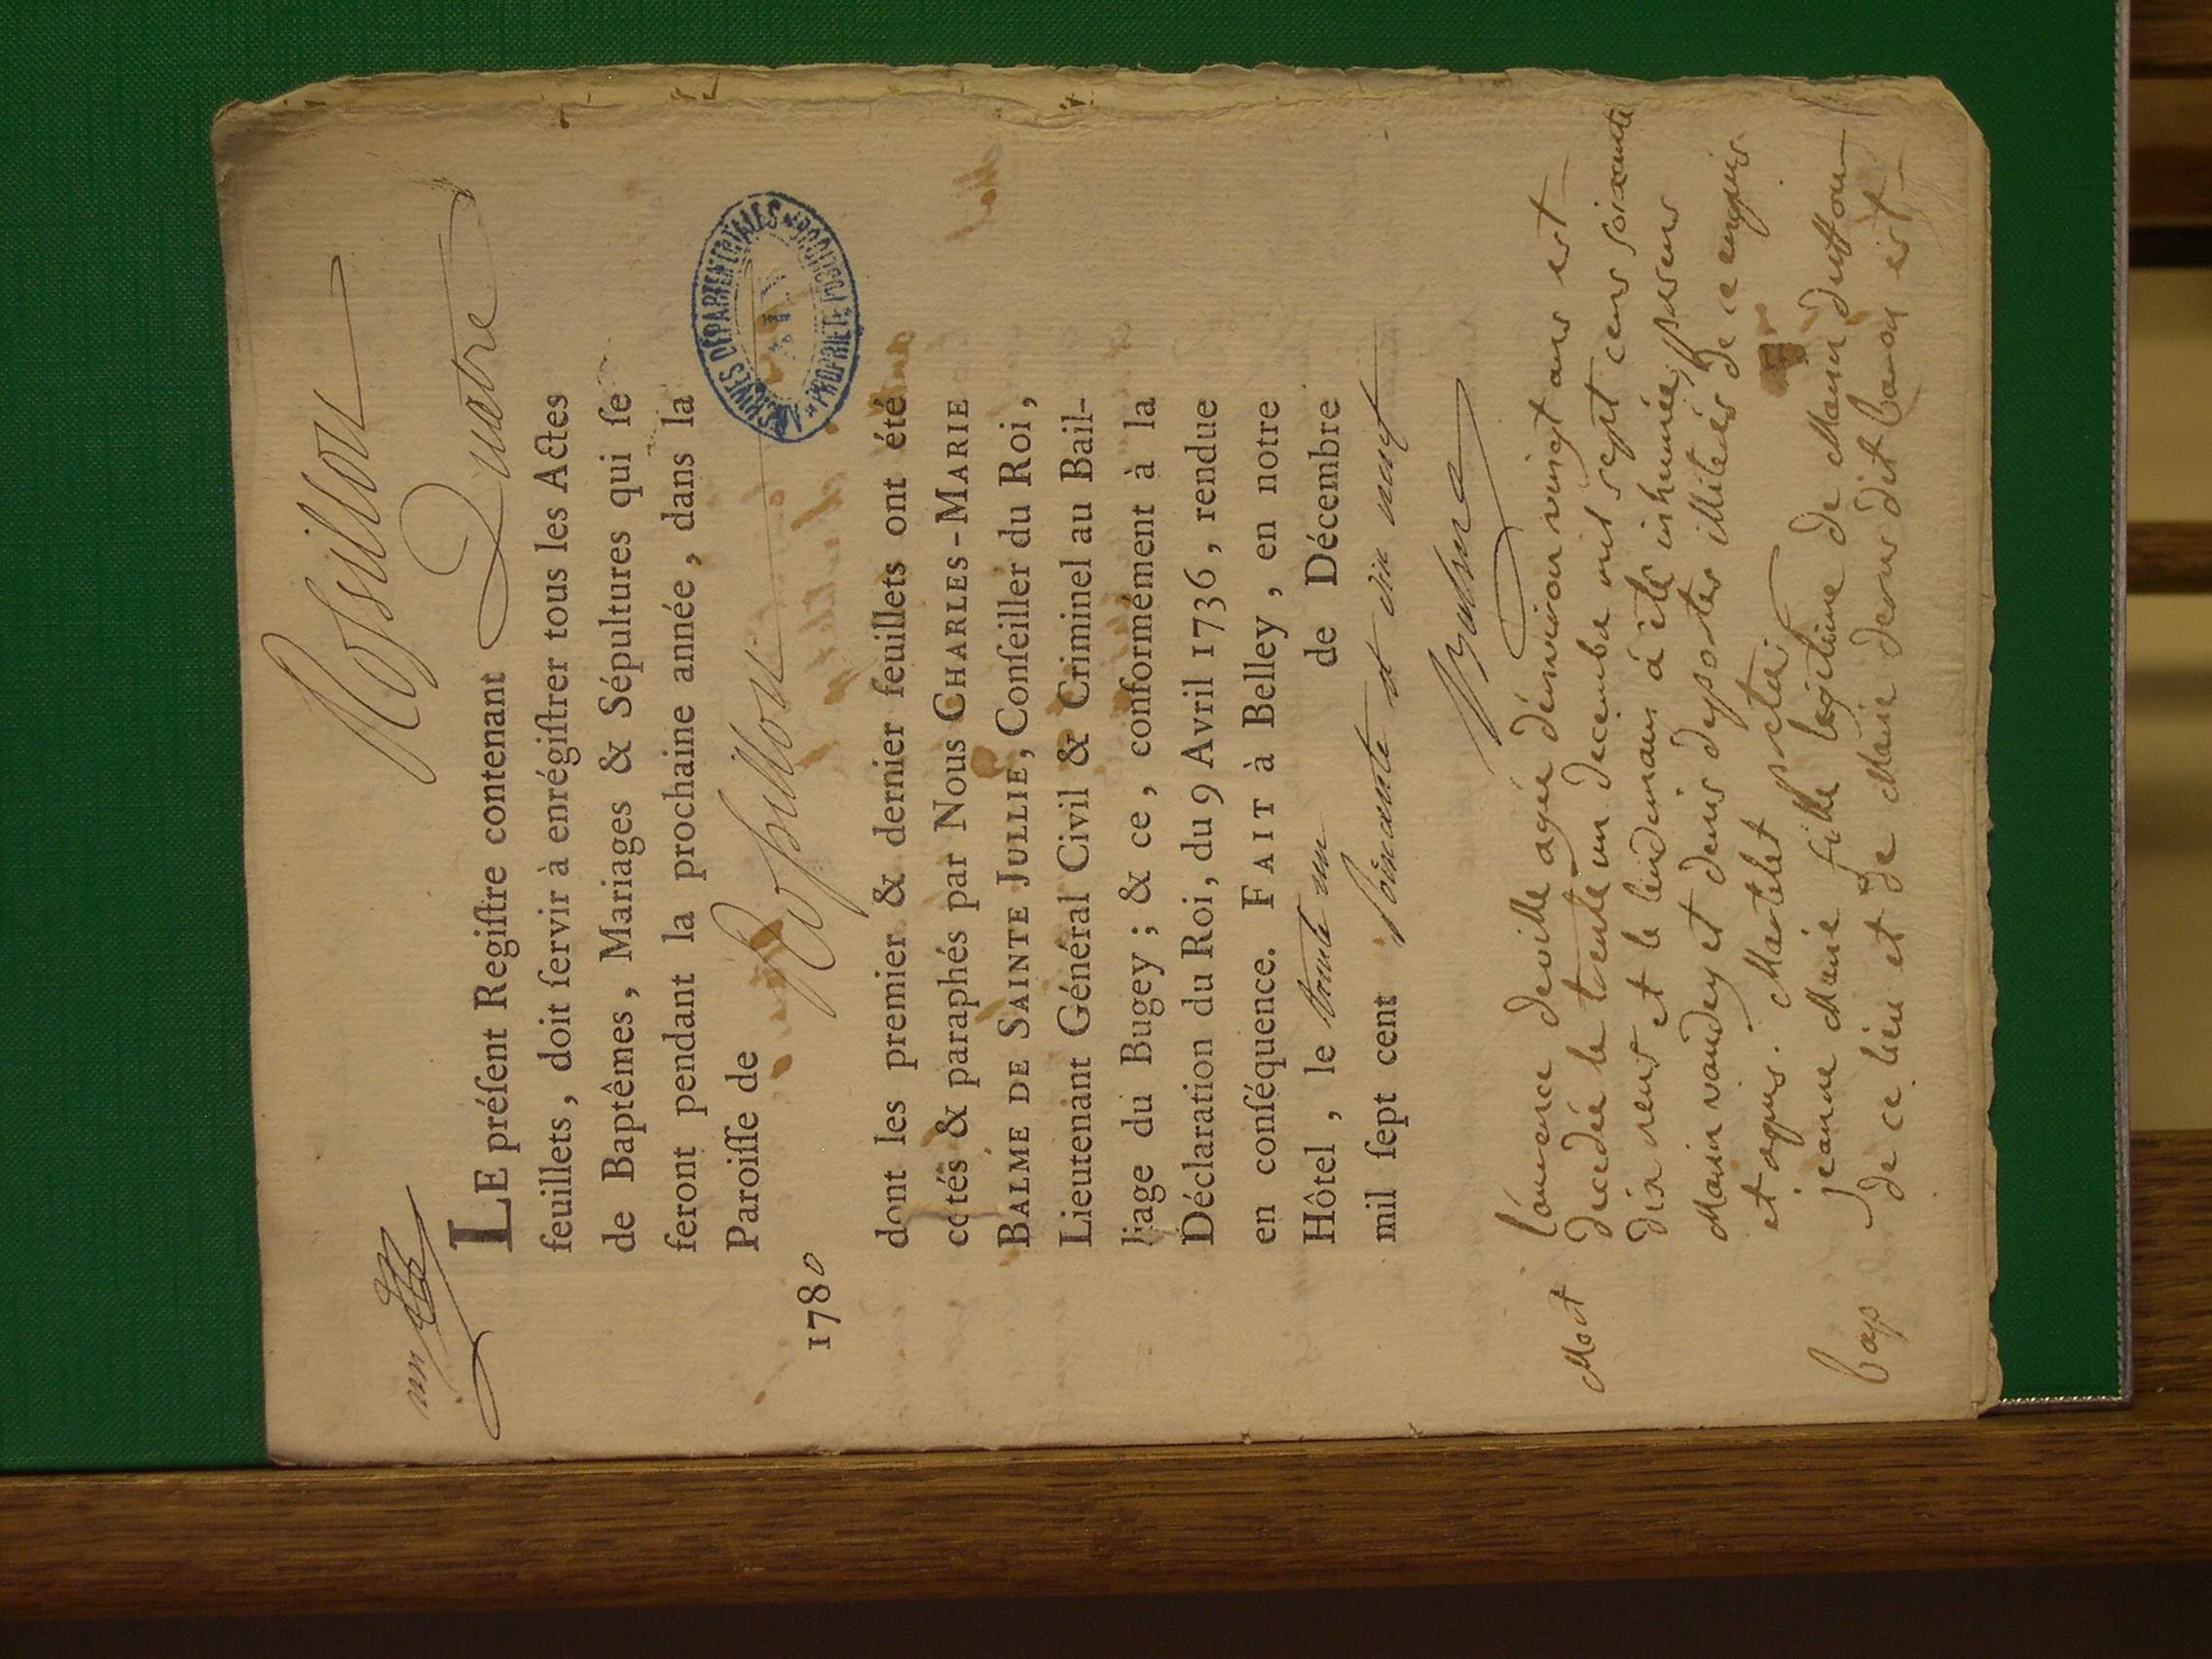 Rossillon
un
LE préſent Regiſtre contenant Quatre
feuillets, doit ſervir à enrégiſtrer tous les Actes
de Baptêmes, Mariages & Sépultures qui ſe
feront pendant la prochaine année, dans la
Paroiſſe de Rossillon
1780
ARCHIVES DÉPARTEMENTALES
AIN
PROPRIÉTÉ PUBLIQUE
dont les premier & dernier feuillets ont été
cotés & paraphés par Nous CHARLES-MARIE
BALME DE SAINTE JULLIE, Conſeiller du Roi,
Lieutenant Général Civil & Criminel au Bail-
liage du Bugey; & ce, conformément à la
Déclaration du Roi, du 9 Avril 1736, rendue
en conſéquence. FAIT à Belley, en notre
Hôtel, le trente un de Décembre
mil ſept cent soixante et dix neuf
Balme
Mort laurence deville agée d'environ vingt ans est
decedée le trente un decembre mil sept cens soixante
dix neuf et le lendemain à été inhumée, presens
et requis. Martelet
bap jeanne Marie fille légitime de
de ce lieu et de Marie